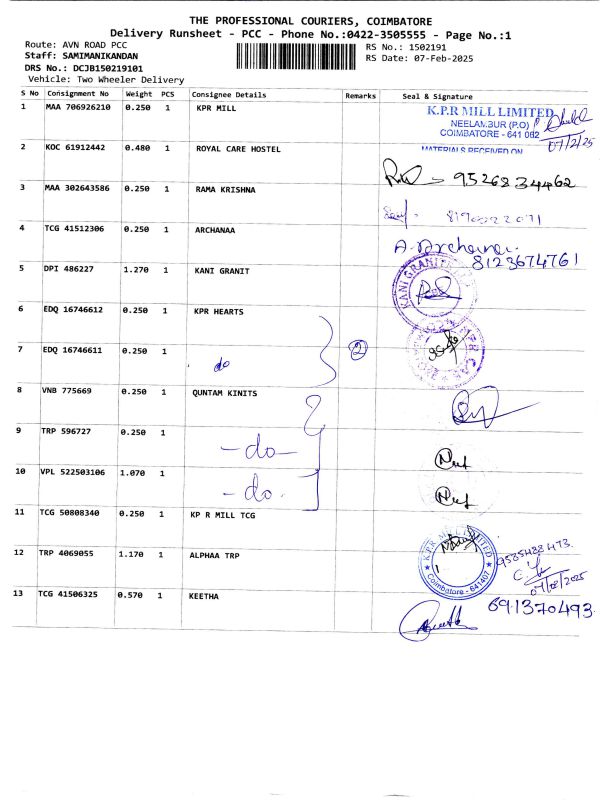 THE PROFESSIONAL COURIERS, COIMBATORE
Delivery Runsheet - PCC - Phone No.:0422-3505555 - Page No.:1
Route: AVN ROAD PCC
RS No.: 1502191
Staff: SAMIMANIKANDAN
RS Date: 07-Feb-2025
DRS No.: DCJB150219101
Vehicle: Two Wheeler Delivery
S No Consignment No Weight PCS Consignee Details Remarks Seal & Signature
1 MAA 706926210 0.250 1 KPR MILL
K.P.R MILL LIMITED
NEELAMBUR (P.O)
COIMBATORE - 641 062
07/2/25
MATERIALS RECEIVED ON
2 KOC 61912442 0.480 1 ROYAL CARE HOSTEL
9526834462
3 MAA 302643586 0.250 1 RAMA KRISHNA
4 TCG 41512306 0.250 1 ARCHANAA
A. Archanaa
8123674761
5 DPI 486227 1.270 1 KANI GRANIT
6 EDQ 16746612 0.250 1 KPR HEARTS
7 EDQ 16746611 0.250 1 do 2
8 VNB 775669 0.250 1 QUNTAM KINITS
9 TRP 596727 0.250 1 -do-
10 VPL 522503106 1.070 1 -do.
11 TCG 50808340 0.250 1 KP R MILL TCG
K.P.R MILL LIMITED
Coimbatore - 641407
12 TRP 4069055 1.170 1 ALPHAA TRP
07/02/2025
13 TCG 41506325 0.570 1 KEETHA
691370493